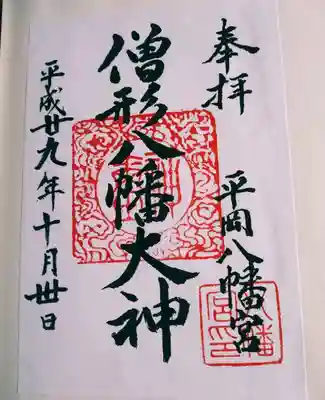 奉拝
平岡八幡宮
僧形八幡大神
平成廿九年十月丗日